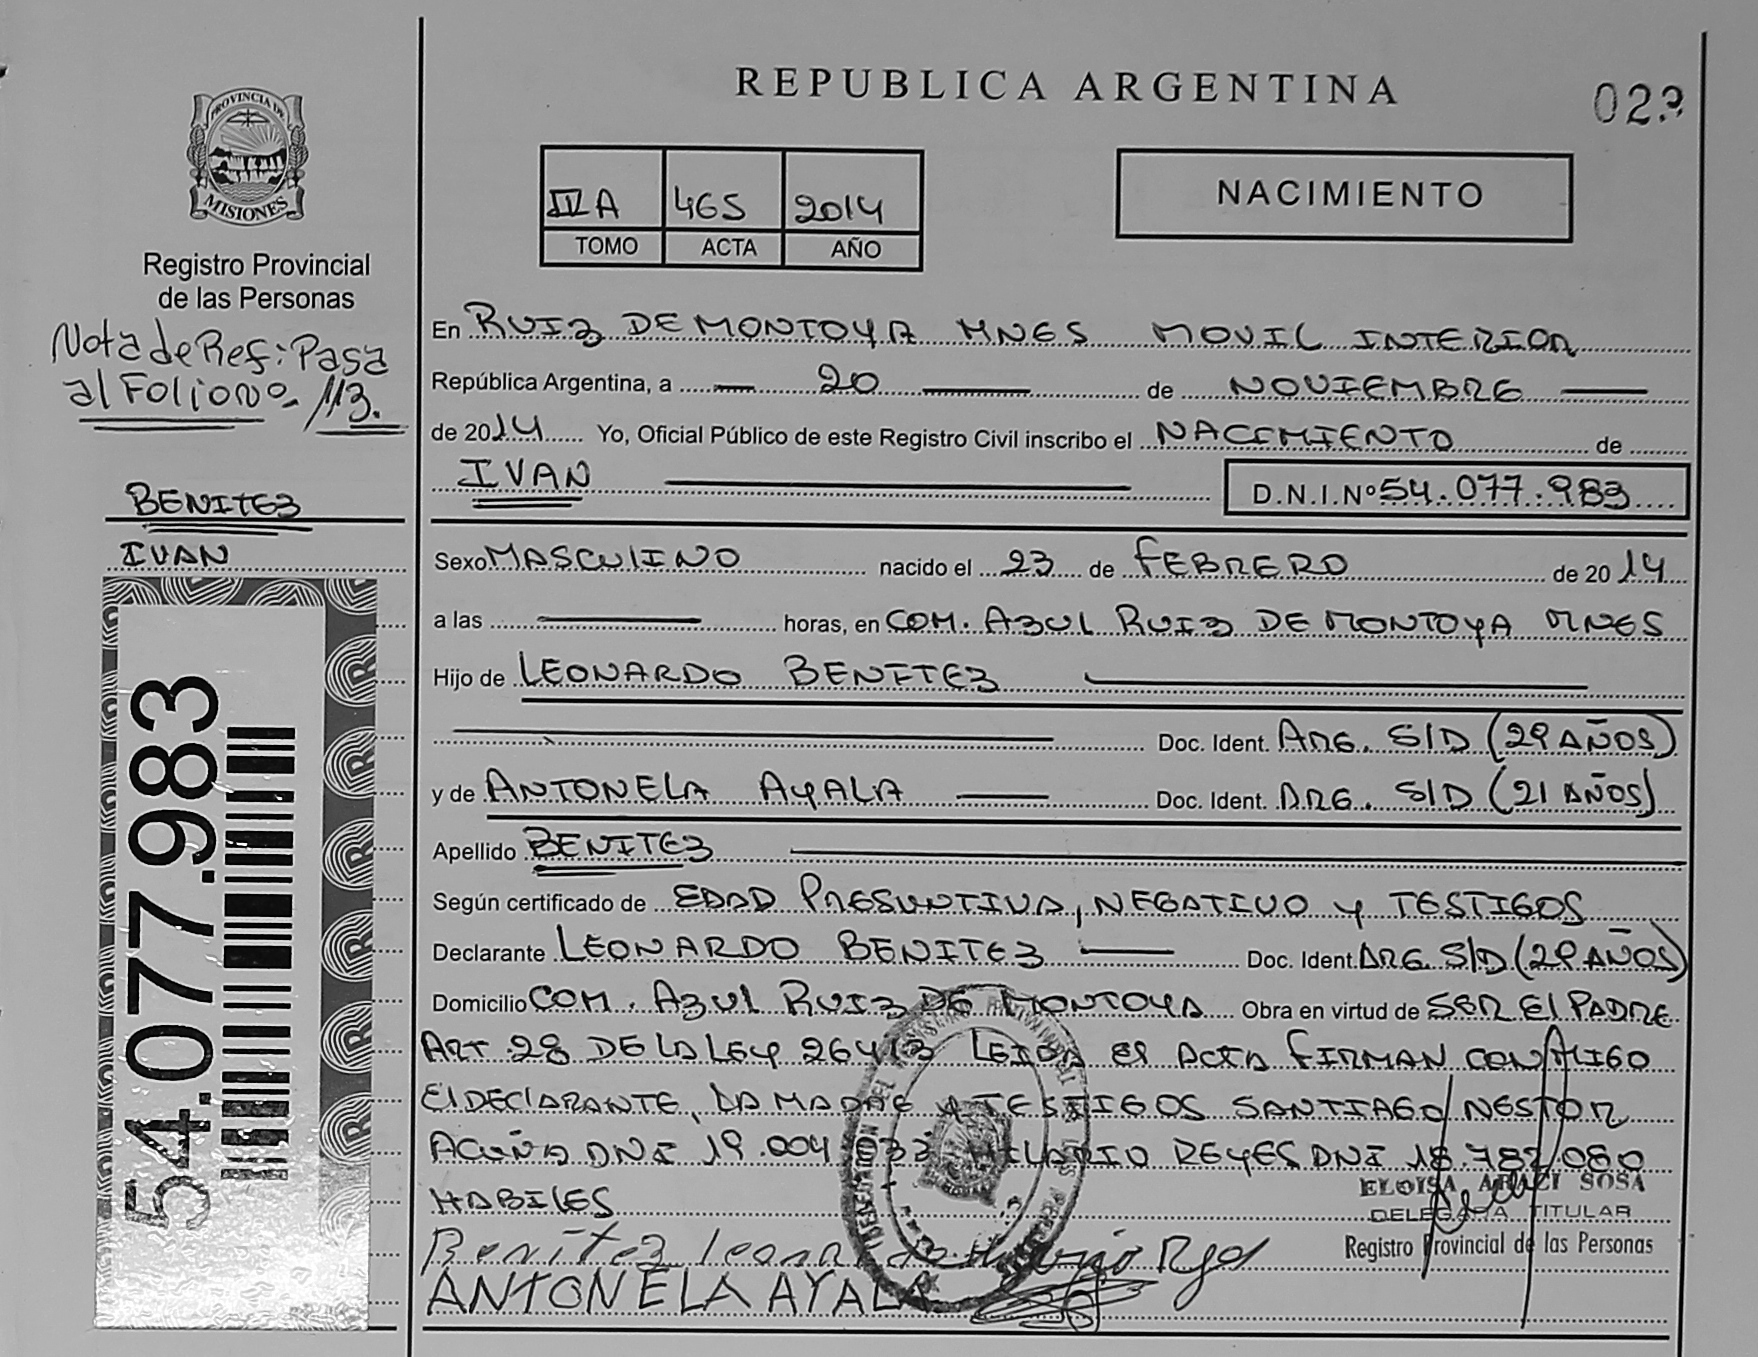 REPUBLICA ARGENTINA
PROVINCIA DE
MISIONES
Registro Provincial
de las Personas
Nota de Ref: Pasa
al Folio nº 113.
BENITEZ
IVAN
54.077.983
IV A 465 2014
TOMO ACTA AÑO
NACIMIENTO
En RUIZ DE MONTOYA MNES MOVIL INTERIOR
República Argentina, a 20 de NOVIEMBRE
de 2014 Yo, Oficial Público de este Registro Civil inscribo el NACIMIENTO de
IVAN D.N.I.Nº 54.077.983
Sexo MASCULINO nacido el 23 de FEBRERO de 2014
a las horas, en COM. AZUL RUIZ DE MONTOYA MNES
Hijo de LEONARDO BENITEZ
Doc. Ident. ARG. S/D (29 AÑOS)
y de ANTONELA AYALA Doc. Ident. ARG. S/D (21 AÑOS)
Apellido BENITEZ
Según certificado de EDAD PRESUNTIVA, NEGATIVO Y TESTIGOS
Declarante LEONARDO BENITEZ Doc. Ident. ARG. S/D (29 AÑOS)
Domicilio COM. AZUL RUIZ DE MONTOYA Obra en virtud de SER El PADRE
ART 28 DE LA LEY 26413 LEIDA EL ACTA FIRMAN CONMIGO
El DEClARANTE, LA MADRE Y TESTIGOS SANTIAGO NESTOR
ACUÑA DNI 19.004.033 HILARIO REYES DNI 18.782.080
HABILES
ELOISA ARACI SOSA
DELEGADA TITULAR
Registro Provincial de las Personas
Benítez Leonardo
ANTONELA AYALA